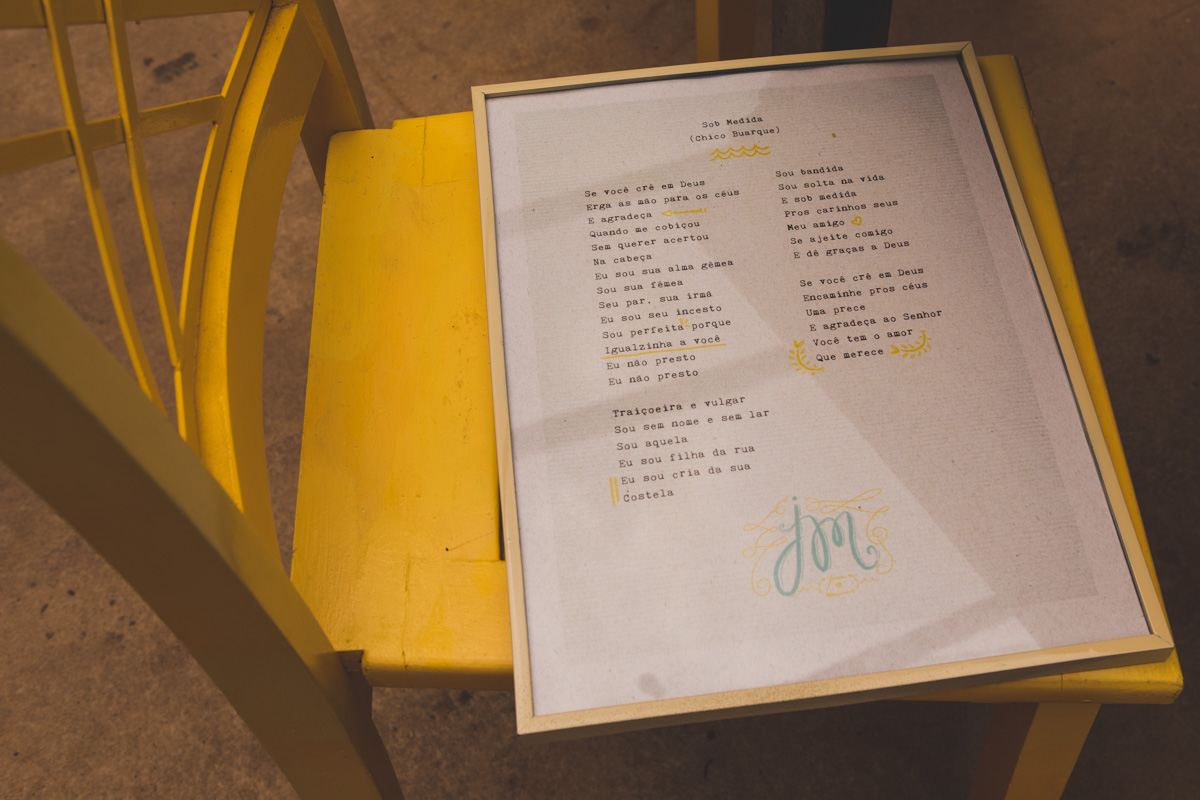 Sob Medida
(Chico Buarque)
Se você crê em Deus
Erga as mão para os céus
E agradeça
Quando me cobiçou
Sem querer acertou
Na cabeça
Eu sou sua alma gêmea
Sou sua fêmea
Seu par, sua irmã
Eu sou seu incesto
Sou perfeita porque
Igualzinha a você
Eu não presto
Eu não presto
Traiçoeira e vulgar
Sou sem nome e sem lar
Sou aquela
Eu sou filha da rua
Eu sou cria da sua
Costela
Sou bandida
Sou solta na vida
E sob medida
Pros carinhos seus
Meu amigo
Se ajeite comigo
E dê graças a Deus
Se você crê em Deus
Encaminhe pros céus
Uma prece
E agradeça ao Senhor
Você tem o amor
Que merece
JM